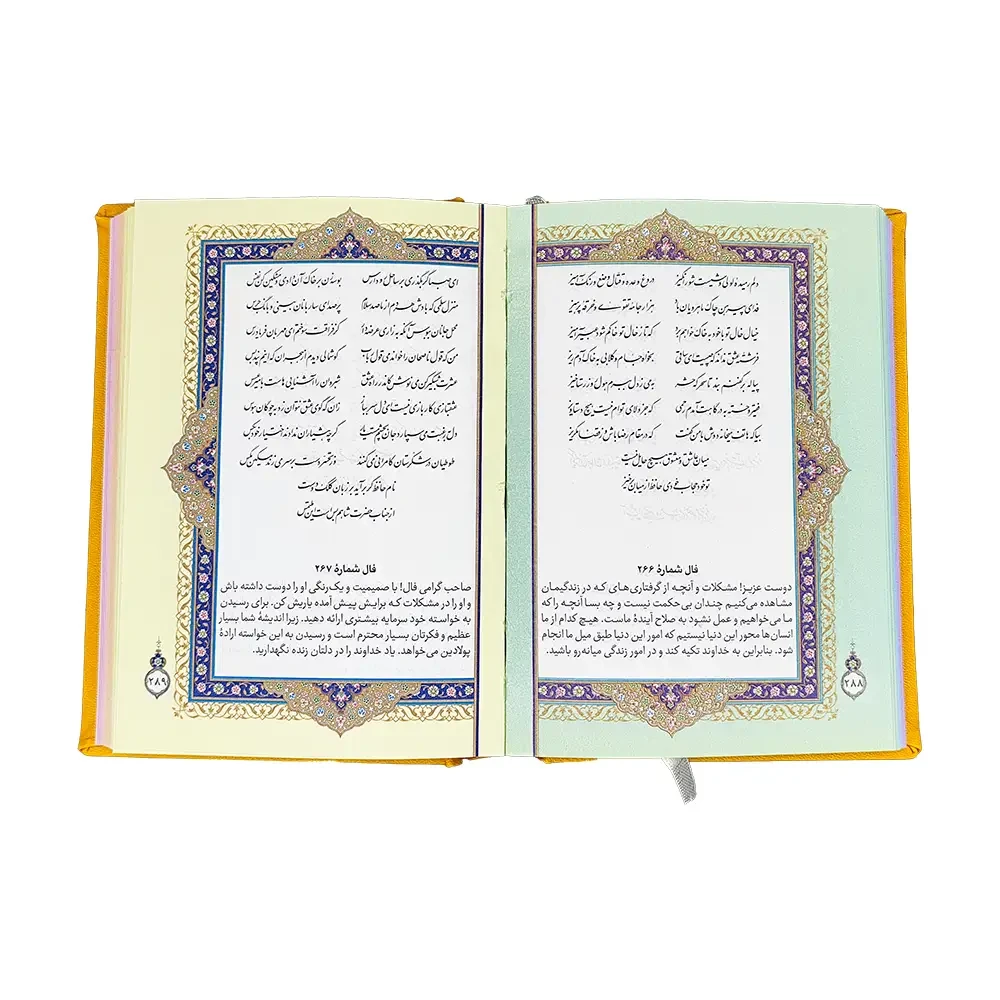 دلم رمیده لولی وشیست شورانگیز دروغ وعده و قتال وضع و رنگ آمیز
فدای پیرهن چاک ماهرویان باد هزار جامه تقوی و خرقه پرهیز
خیال خال تو با خود به خاک خواهم برد که تا ز خال تو خاکم شود عبیرآمیز
فرشته عشق نداند که چیست ای ساقی بخواه جام و گلابی به خاک آدم ریز
پیاله بر کفنم بند تا سحرگه حشر به می ز دل ببرم هول روز رستاخیز
فقیر و خسته به درگاهت آمدم رحمی که جز ولای توام نیست هیچ دستاویز
بیا که هاتف میخانه دوش با من گفت که در مقام رضا باش و از قضا مگریز
میان عاشق و معشوق هیچ حائل نیست
تو خود حجاب خودی حافظ از میان برخیز
فال شمارهٔ ۲۶۶
دوست عزیز! مشکلات و آنچه از گرفتاری‌های که در زندگیمان
مشاهده می‌کنیم چندان بی‌حکمت نیست و چه بسا آنچه را که
ما می‌خواهیم و عمل نشود به صلاح آیندهٔ ماست. هیچ کدام از ما
انسان‌ها محور این دنیا نیستیم که امور این دنیا طبق میل ما انجام
شود. بنابراین به خداوند تکیه کند و در امور زندگی میانه‌رو باشید.
۲۸۸
ای صبا گر بگذری بر ساحل رود ارس بوسه زن بر خاک آن وادی و مشکین کن نفس
منزل سلمی که بادش هر دم از ما صد سلام پر صدای ساربانان بینی و بانگ جرس
محمل جانان ببوس آنگه به زاری عرضه دار کز فراقت سوختم ای مهربان فریاد رس
من که قول ناصحان را خواندمی قول رباب گوشمالی دیدم از هجران که اینم پند بس
عشرت شبگیر کن می نوش کاندر راه عشق شبروان را آشنایی هاست با میر عسس
عشقبازی کار بازی نیست ای دل سر بباز زان که گوی عشق نتوان زد به چوگان هوس
دل به رغبت می سپارد جان به چشم مست یار گرچه هشیاران ندادند اختیار خود به کس
طوطیان در شکرستان کامرانی می کنند وز تحسر دست بر سر می زند مسکین مگس
نام حافظ گر برآید بر زبان کلک دوست
از جناب حضرت شاهم بس است این ملتمس
فال شمارهٔ ۲۶۷
صاحب گرامی فال! با صمیمیت و یک‌رنگی او را دوست داشته باش
و او را در مشکلات که برایش پیش آمده یاریش کن. برای رسیدن
به خواسته خود سرمایه بیشتری ارائه دهید. زیرا اندیشهٔ شما بسیار
عظیم و فکرتان بسیار محترم است و رسیدن به این خواسته ارادهٔ
پولادین می‌خواهد. یاد خداوند را در دلتان زنده نگهدارید.
۲۸۹